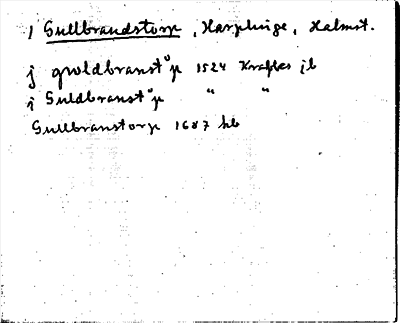 1 Gullbrandstorp, Harplinge, Halmst.
j gwldbranstrup 1524 Kraftes jb
j Guldbranstrup " "
Gullbranstorp 1687 hb